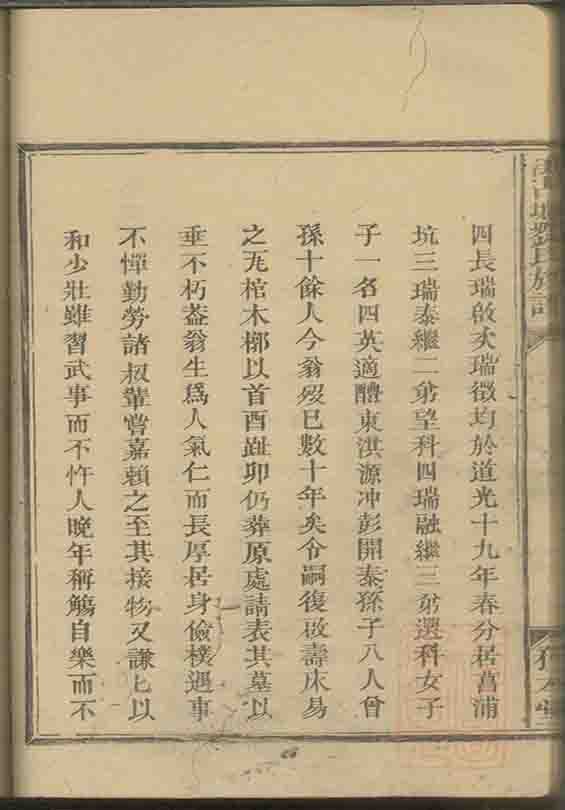 四長瑞啟次瑞徵均於道光十九年春分居菖浦
坑三瑞泰繼二弟望科四瑞融繼三弟選科女子
子一名四英適醴東洪源冲彭開泰孫子八人曾
孫十餘人今翁歿已數十年矣令嗣復啟壽床易
之死棺木槨以首酉趾卯仍葬原處請表其墓以
垂不朽葢翁生爲人氣仁而長厚居身儉樸遇事
不憚勤勞諸叔輩嘗嘉賴之至其接物又謙匕以
和少壯雖習武事而不忤人晚年稱觴自樂而不
劉氏族譜